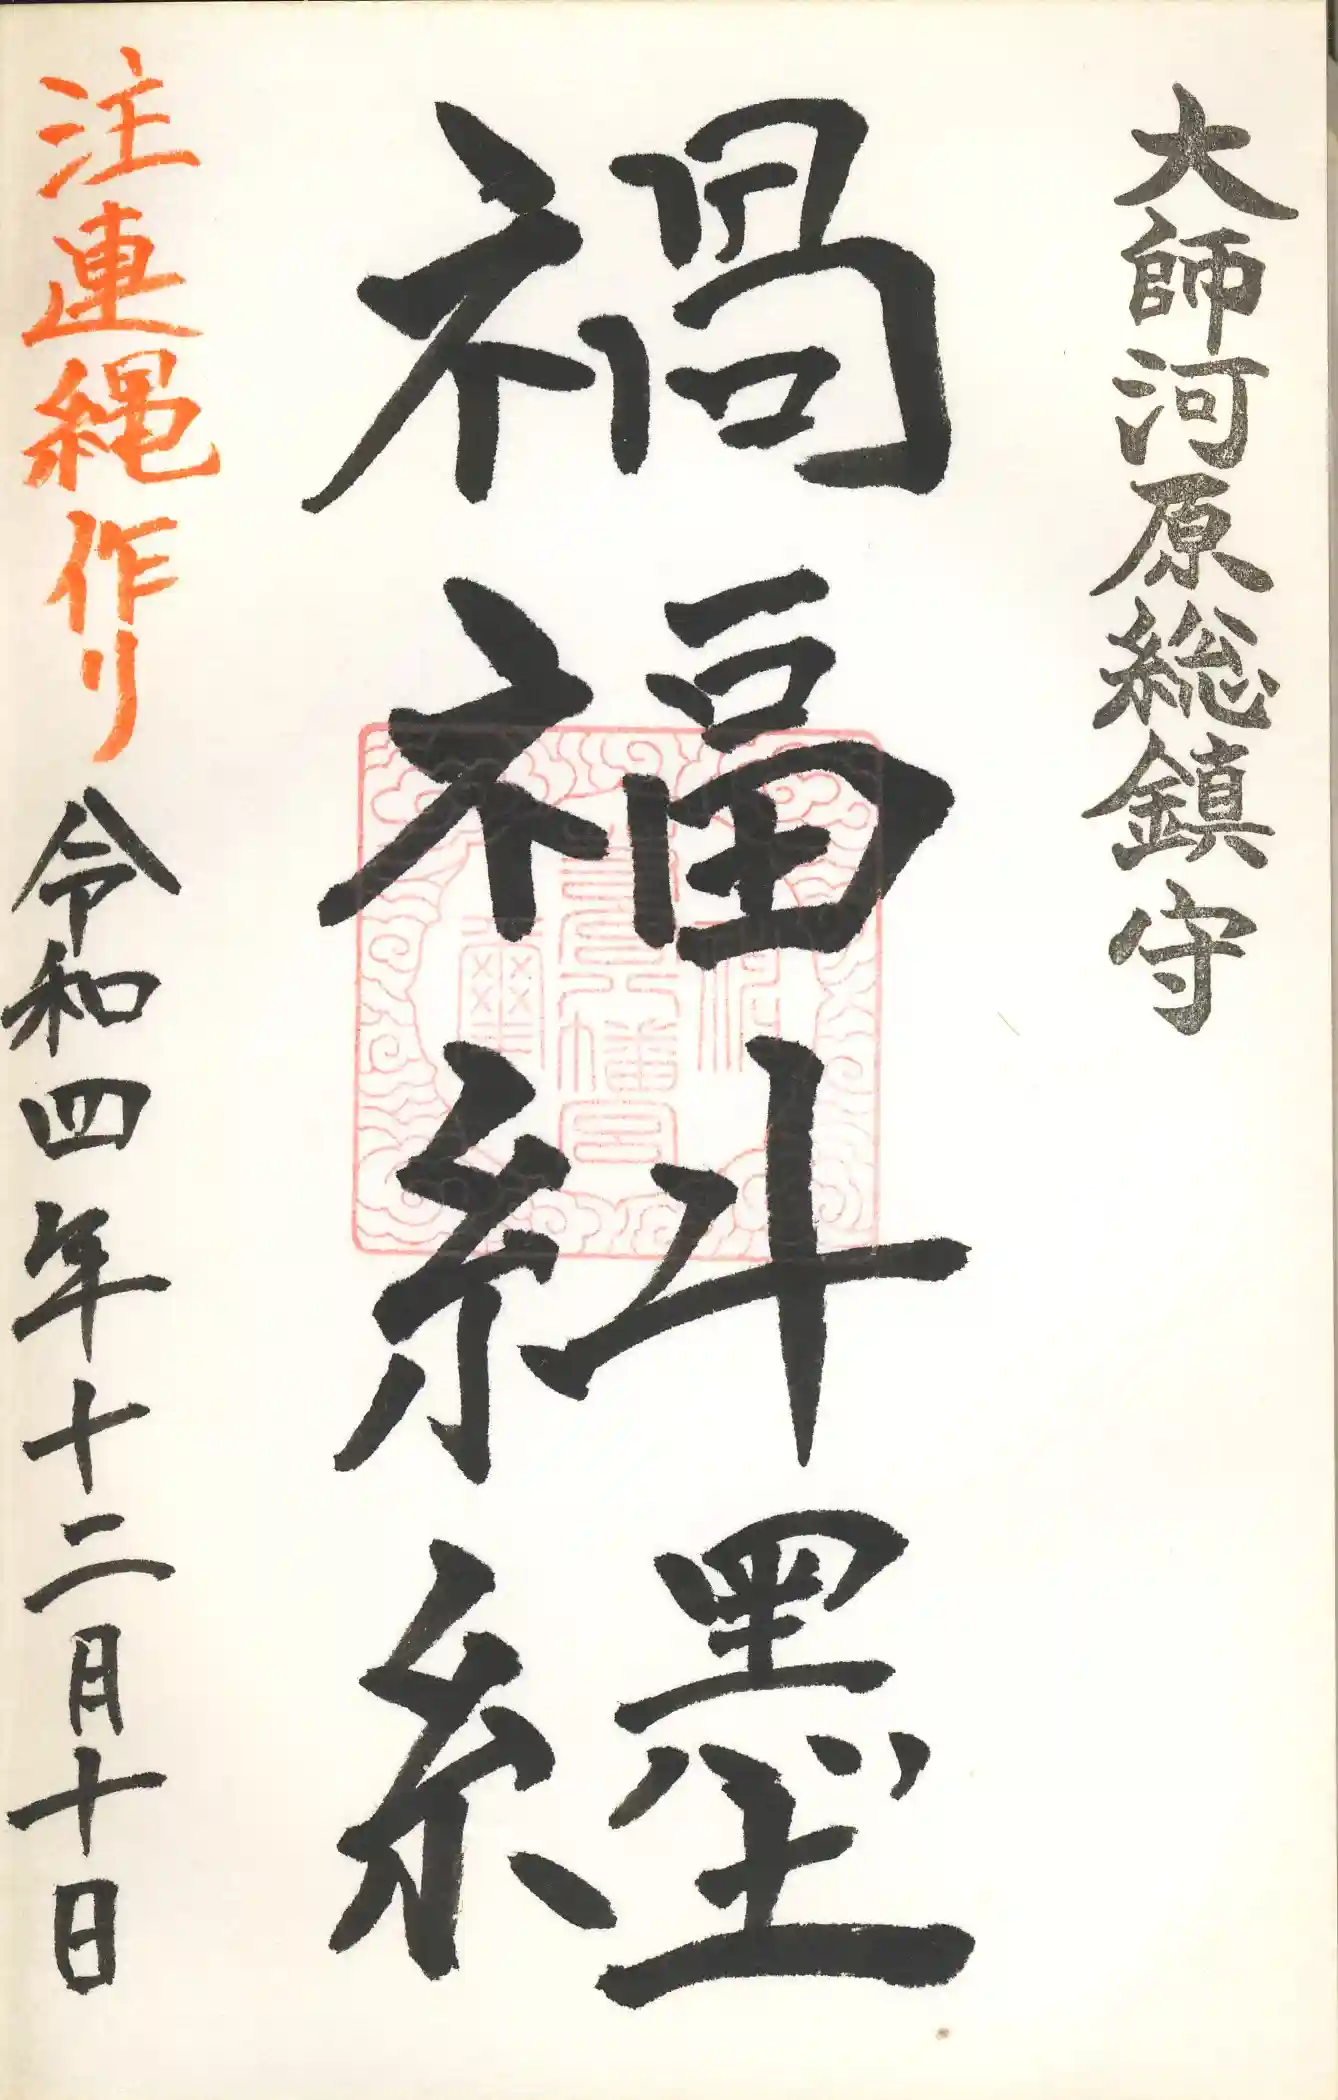 大師河原総鎮守
禍福糾纆
注連縄作り 令和四年十二月十日